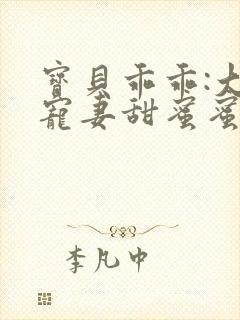 寶貝乖乖:大
寵妻甜蜜蜜
李凡中